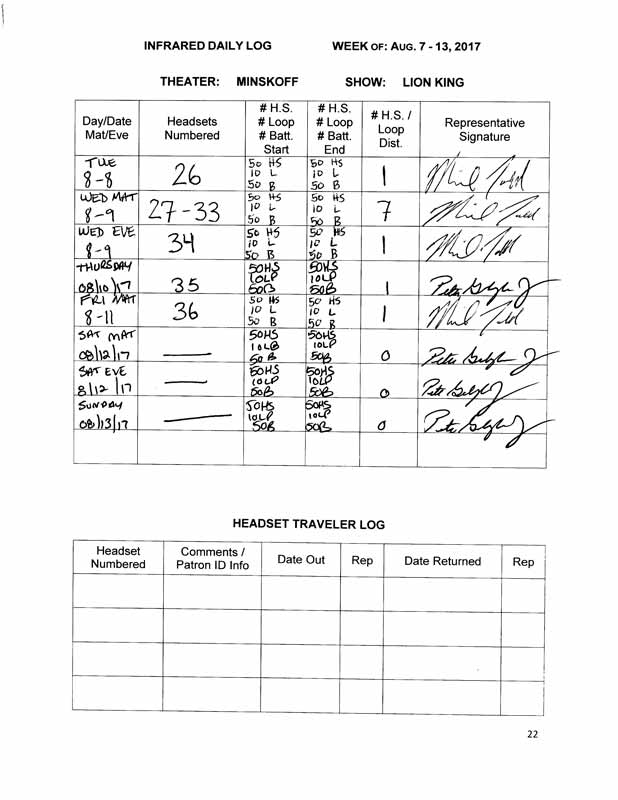 INFRARED DAILY LOG WEEK OF: AUG. 7 - 13, 2017
THEATER: MINSKOFF SHOW: LION KING
Day/Date
Mat/Eve
Headsets
Numbered
# H.S.
# Loop
# Batt.
Start
# H.S.
# Loop
# Batt.
End
# H.S. /
Loop
Dist.
Representative
Signature
TUE
8-8
26
50 HS
10 L
50 B
50 HS
10 L
50 B
1
WED MAT
8-9
27-33
50 HS
10 L
50 B
50 HS
10 L
50 B
7
WED EVE
8-9
34
50 HS
10 L
50 B
50 HS
10 L
50 B
1
THURSDAY
08/10/17
35
50HS
10LP
50B
50HS
10LP
50B
1
FRI MAT
8-11
36
50 HS
10 L
50 B
50 HS
10 L
50 B
1
SAT MAT
08/12/17
—
50HS
50 B
50HS
10LP
50B
0
SAT EVE
8/12/17
—
50HS
10LP
50B
50HS
10LP
50B
0
SUNDAY
08/13/17
—
50HS
10LP
50B
50HS
10LP
50B
0
HEADSET TRAVELER LOG
Headset
Numbered
Comments /
Patron ID Info
Date Out
Rep
Date Returned
Rep
22